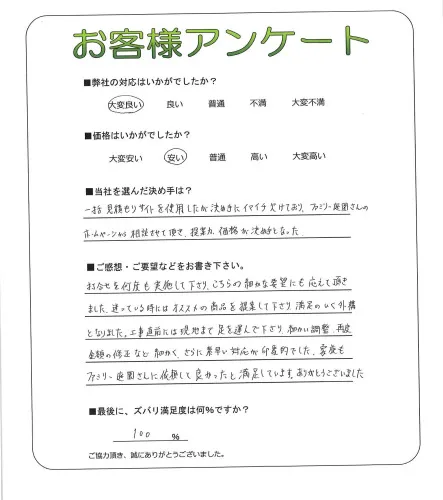 お客様アンケート
■弊社の対応はいかがでしたか？
大変良い 良い 普通 不満 大変不満
■価格はいかがでしたか？
大変安い 安い 普通 高い 大変高い
■当社を選んだ決め手は？
一括見積もりサイトを使用したが決め手にイマイチ欠けており、ファミリー庭園さんの
ホームページから相談させて頂き、提案力、価格が決め手となった。
■ご感想・ご要望などをお書き下さい。
打合せを何度も実施して下さり、こちらの細かな要望にも応えて頂き
ました。迷っている時にはオススメの商品を提案して下さり満足のいく外構
となりました。工事直前には現地まで足を運んで下さり、細かい調整、再度
金額の修正など細かく、さらに素早い対応が印象的でした。
ファミリー庭園さんに依頼して良かったと満足しています。ありがとうございました
■最後に、ズバリ満足度は何％ですか？
100 ％
ご協力頂き、誠にありがとうございました。